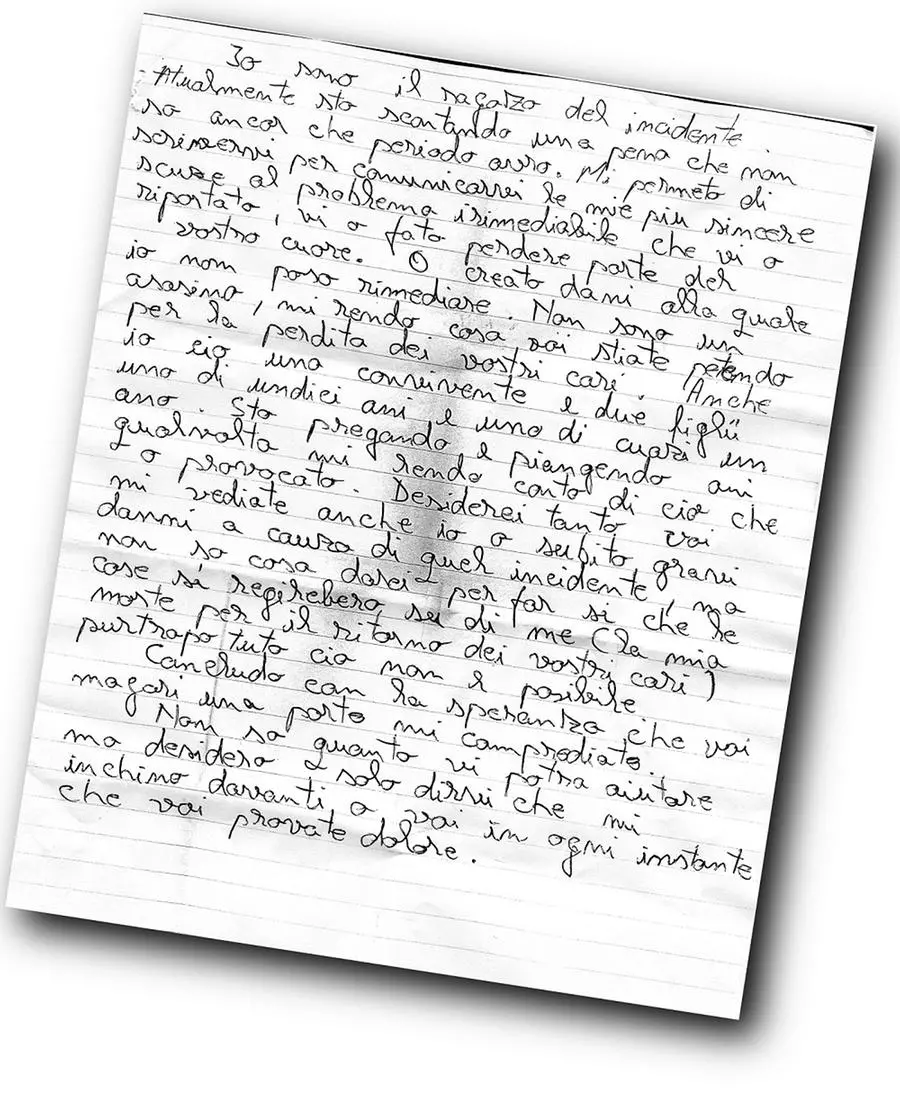 Io sono il ragazzo del incidente
Atualmente sto scontando una pena che non
so ancor che periodo avro. Mi permeto di
scrivervi per comunicarvi le mie piu sincere
scuse al problema irimediabile che vi o
riportato, vi o fato perdere parte del
vostro cuore. O creato dani alla quale
io non poso rimediare. Non sono un
asasino, mi rendo cosa voi stiate petendo
per la perdita dei vostri cari. Anche
io cio una convivente e due figlii
uno di undici ani e uno di cuasi un
ano. Sto pregando e piangendo ani
qualvolta mi rendo conto di cio che
o provocato. Desiderei tanto voi
mi vediate anche io o subito gravi
danni a causa di quel incidente, ma
non so cosa darei per far si che le
cose si regirebero su di me (la mia
morte per il ritorno dei vostri cari)
purtrapo tuto cio non e posibile
Concludo con la speranza che voi
magari una parte mi comprediate.
Non so quanto vi potra aiutare
ma desidero solo dirvi che mi
inchino davanti a voi in ogni instante
che voi provate dolore.